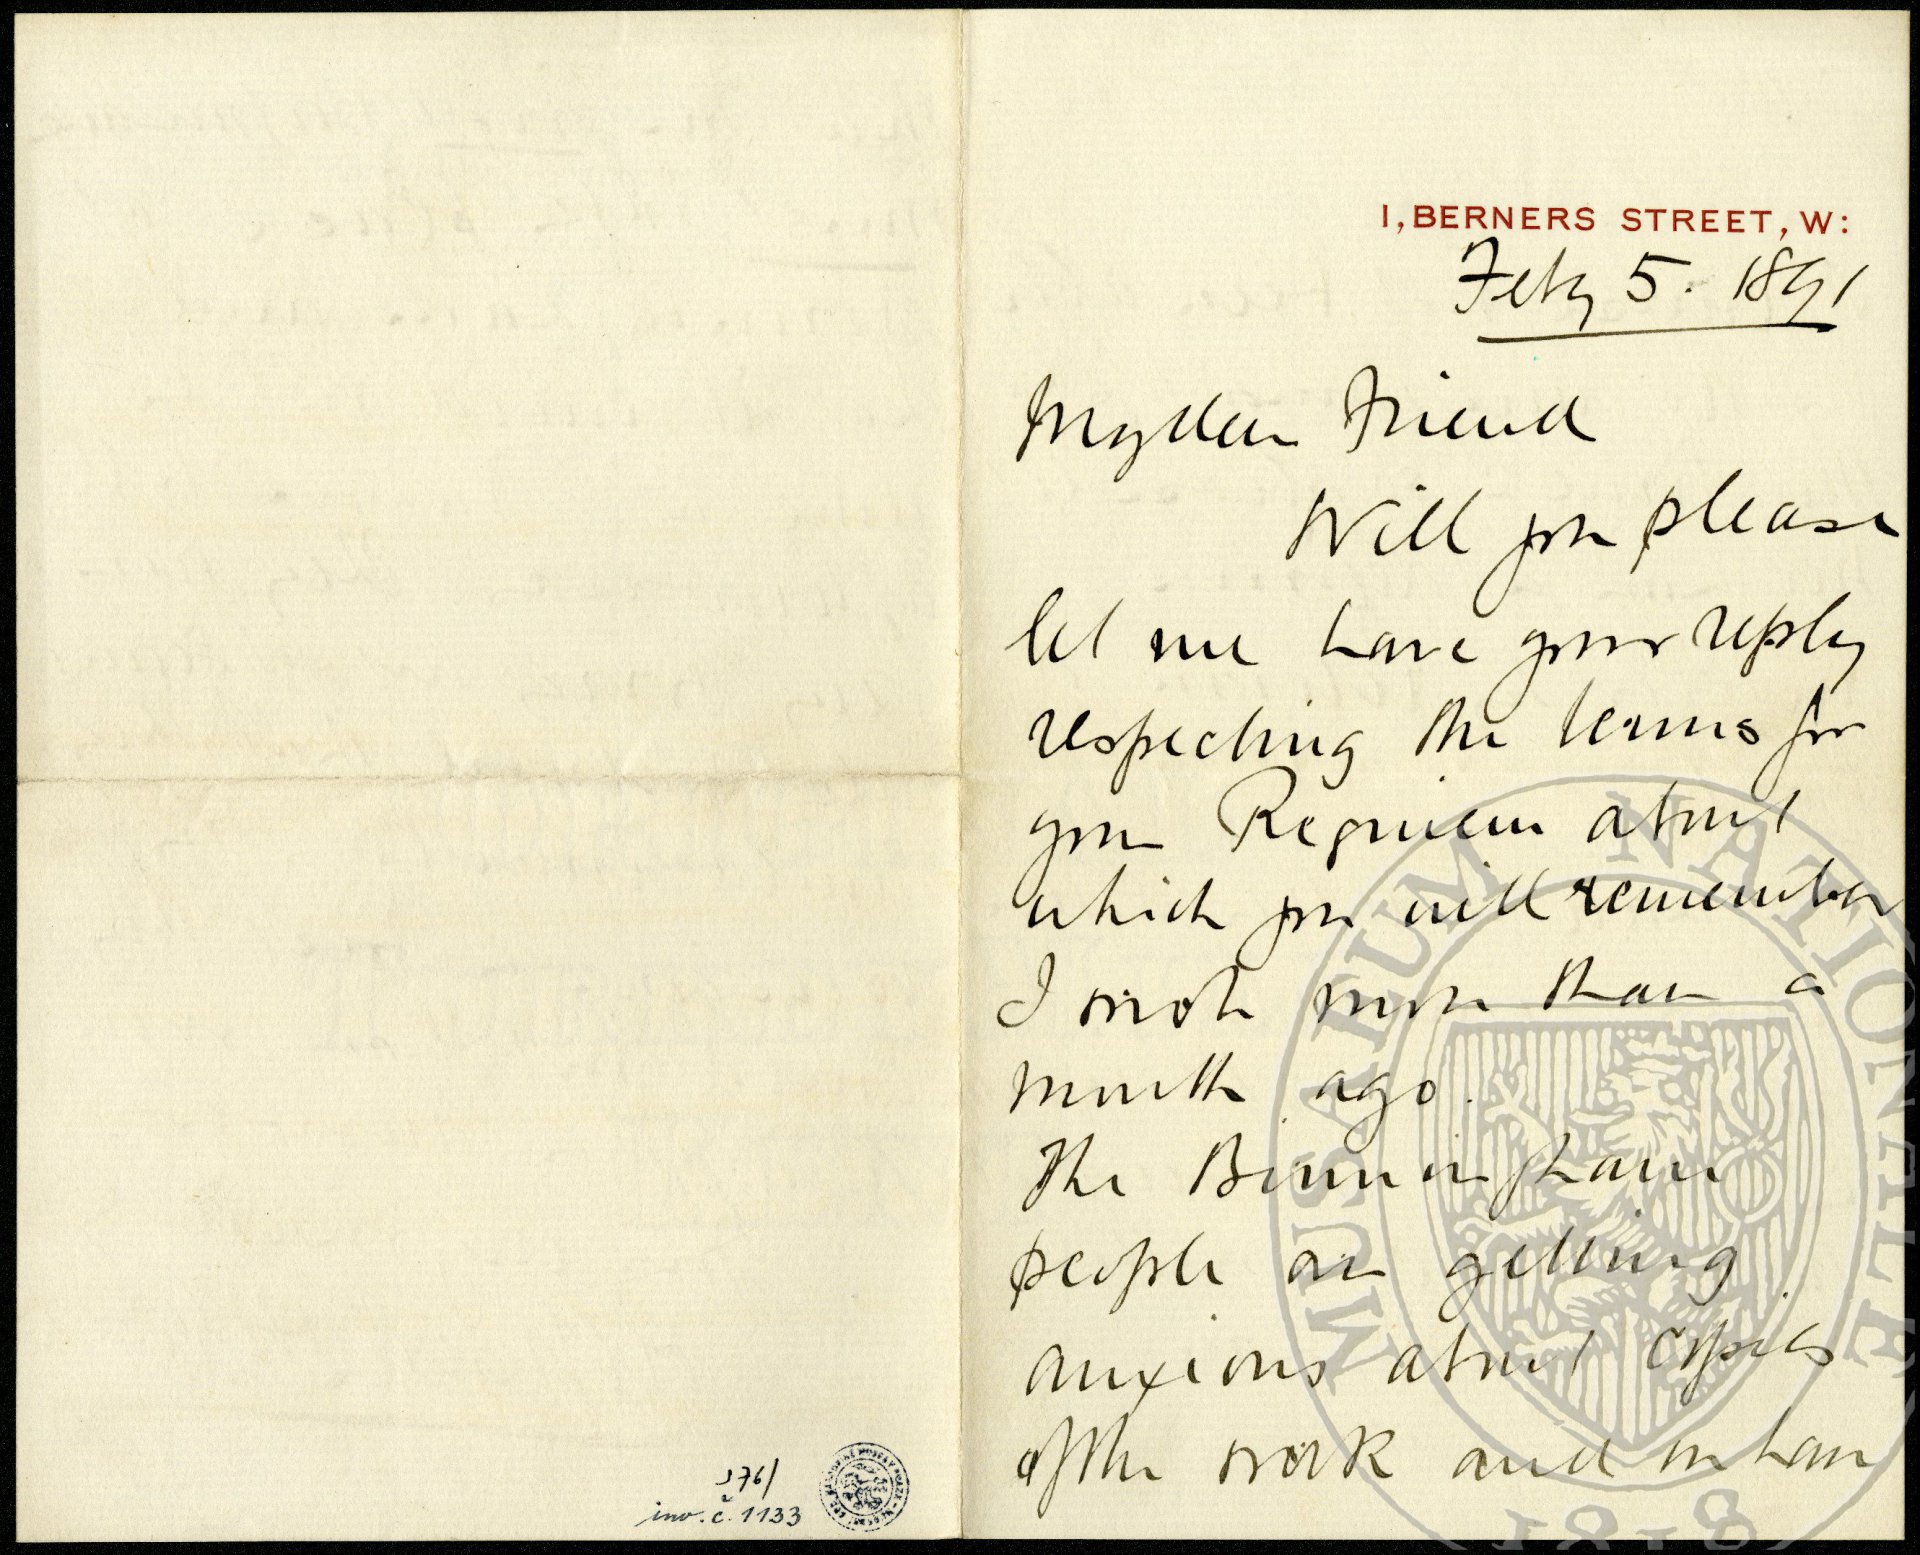 1, BERNERS STREET, W:
Feby 5. 1891
My dear Friend
Will you please
let me have your reply
respecting the terms for
your Requiem about
which you will remember
I wrote more than a
month ago.
The Birmingham
people are getting
anxious about copies
of the work and we have
inv. č. 1133
MUSAEUM NATIONALE
1818